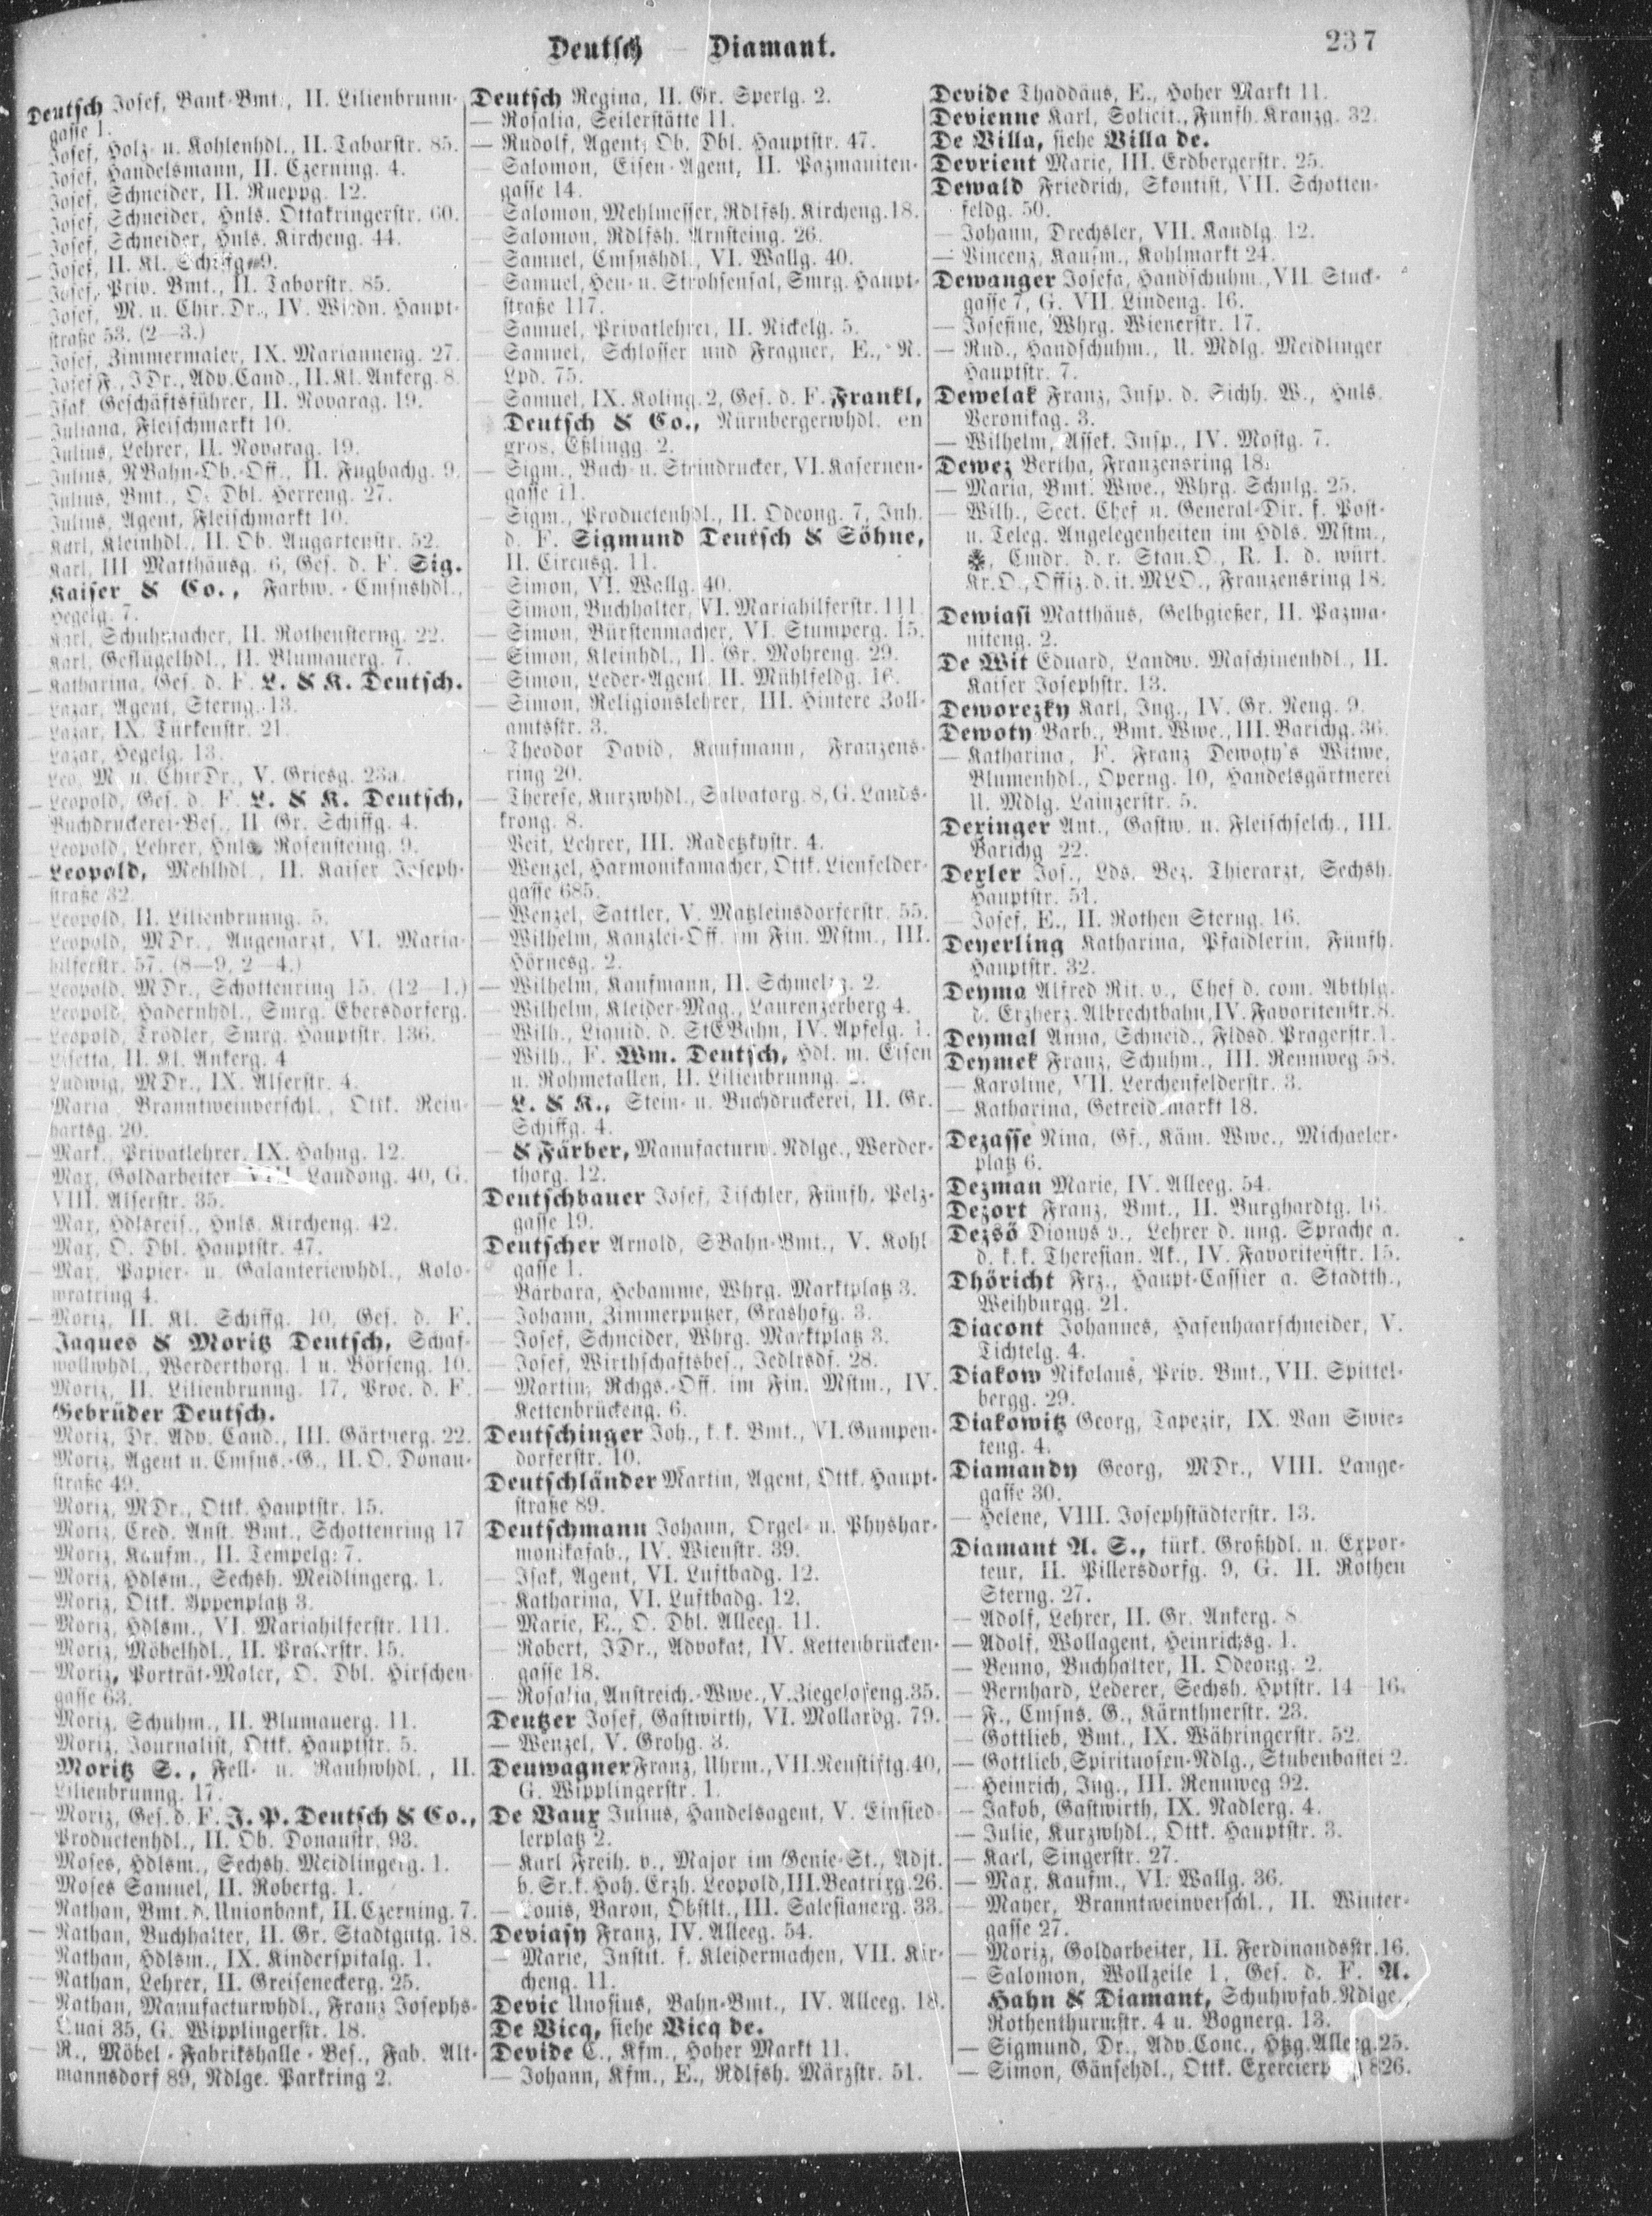 Deutsch — Diamant.
237
Deutsch Josef, Bank-Bmt., II. Lilienbrunn-
gasse 1.
— Josef, Holz- u. Kohlenhdl., II. Taborstr. 85.
— Josef, Handelsmann, II. Czerning. 4.
— Josef, Schneider, II. Rueppg. 12.
— Josef, Schneider, Hnls. Ottakringerstr. 60.
— Josef, Schneider, Hnls. Kircheng. 44.
— Josef, II. Kl. Schiffg. 9.
— Josef, Priv. Bmt., II. Taborstr. 85.
— Josef, M. u. Chir.Dr., IV. Wiedn. Haupt-
straße 53. (2—3.)
— Josef, Zimmermaler, IX. Marianneng. 27.
— Josef F., JDr., Adv.Cand., II. Kl. Ankerg. 8.
— Isak, Geschäftsführer, II. Novarag. 19.
— Juliana, Fleischmarkt 10.
— Julius, Lehrer, II. Novarag. 19.
— Julius, NBahn-Ob.-Off., II. Fugbachg. 9.
— Julius, Bmt., O. Dbl. Herreng. 27.
— Julius, Agent, Fleischmarkt 10.
— Karl, Kleinhdl., II. Ob. Augartenstr. 52.
— Karl, III. Matthäusg. 6, Ges. d. F. Sig.
Kaiser & Co., Farbw.-Cmsnshdl.,
Hegelg. 7.
— Karl, Schuhmacher, II. Rothensterng. 22.
— Karl, Geflügelhdl., II. Blumauerg. 7.
— Katharina, Ges. d. F. L. & K. Deutsch.
— Lazar, Agent, Sterng. 13.
— Lazar, IX. Türkenstr. 21.
— Lazar, Hegelg. 13.
— Leo, M. u. ChirDr., V. Griesg. 23a.
— Leopold, Ges. d. F. L. & K. Deutsch,
Buchdruckerei-Bes., II. Gr. Schiffg. 4.
— Leopold, Lehrer, Hnls. Rosensteing. 9.
— Leopold, Mehlhdl., II. Kaiser Joseph-
straße 32.
— Leopold, II. Lilienbrunng. 5.
— Leopold, MDr., Augenarzt, VI. Maria-
hilferstr. 57. (8—9, 2—4.)
— Leopold, MDr., Schottenring 15. (12—1.)
— Leopold, Hadernhdl., Smrg. Ebersdorferg.
— Leopold, Trödler, Smrg. Hauptstr. 136.
— Lisetta, II. Kl. Ankerg. 4.
— Ludwig, MDr., IX. Alserstr. 4.
— Maria, Branntweinverschl., Ottk. Rein-
hartsg. 20.
— Mark., Privatlehrer, IX. Hahng. 12.
— Max, Goldarbeiter, VIII. Laudong. 40, G.
VIII. Alserstr. 35.
— Max, Hdlsreis., Hnls. Kircheng. 42.
— Max, O. Dbl. Hauptstr. 47.
— Max, Papier- u. Galanteriewhdl., Kolo-
wratring 4.
— Moriz, II. Kl. Schiffg. 10, Ges. d. F.
Jaques & Moritz Deutsch, Schaf-
wollwhdl., Werderthorg. 1 u. Börseng. 10.
— Moriz, II. Lilienbrunng. 17, Proc. d. F.
Gebrüder Deutsch.
— Moriz, Dr. Adv. Cand., III. Gärtnerg. 22.
— Moriz, Agent u. Cmsns.-G., II. O. Donau-
straße 49.
— Moriz, MDr., Ottk. Hauptstr. 15.
— Moriz, Cred. Anst. Bmt., Schottenring 17
— Moriz, Kaufm., II. Tempelg. 7.
— Moriz, Hdlsm., Sechsh. Meidlingerg. 1.
— Moriz, Ottk. Yppenplatz 3.
— Moriz, Hdlsm., VI. Mariahilferstr. 111.
— Moriz, Möbelhdl., II. Praterstr. 15.
— Moriz, Porträt-Maler, O. Dbl. Hirschen-
gasse 63.
— Moriz, Schuhm., II. Blumauerg. 11.
— Moriz, Journalist, Ottk. Hauptstr. 5.
— Moritz S., Fell- u. Rauhwhdl., II.
Lilienbrunng. 17.
— Moriz, Ges. d. F. J. P. Deutsch & Co.,
Productenhdl., II. Ob. Donaustr. 93.
— Moses, Hdlsm., Sechsh. Meidlingerg. 1.
— Moses Samuel, II. Robertg. 1.
— Nathan, Bmt. d. Unionbank, II. Czerning. 7.
— Nathan, Buchhalter, II. Gr. Stadtgutg. 18.
— Nathan, Hdlsm., IX. Kinderspitalg. 1.
— Nathan, Lehrer, II. Greiseneckerg. 25.
— Nathan, Manufacturwhdl., Franz Josephs-
Quai 35, G. Wipplingerstr. 18.
— R., Möbel-Fabrikshalle-Bes., Fab. Alt-
mannsdorf 89, Ndlge. Parkring 2.
Deutsch Regina, II. Gr. Sperlg. 2.
— Rosalia, Seilerstätte 11.
— Rudolf, Agent, Ob. Dbl. Hauptstr. 47.
— Salomon, Eisen-Agent, II. Pazmaniten-
gasse 14.
— Salomon, Mehlmesser, Rdlfsh. Kircheng. 18.
— Salomon, Rdlfsh. Arnsteing. 26.
— Samuel, Cmsnshdl., VI. Wallg. 40.
— Samuel, Heu- u. Strohsensal, Smrg. Haupt-
straße 117.
— Samuel, Privatlehrer, II. Nickelg. 5.
— Samuel, Schlosser und Fragner, E., N.
Lpd. 75.
— Samuel, IX. Koling. 2, Ges. d. F. Frankl,
Deutsch & Co., Nürnbergerwhdl. en
gros, Eßlingg. 2.
— Sigm., Buch- u. Steindrucker, VI. Kasernen-
gasse 11.
— Sigm., Productenhdl., II. Odeong. 7, Inh.
d. F. Sigmund Deutsch & Söhne,
II. Circusg. 11.
— Simon, VI. Wallg. 40.
— Simon, Buchhalter, VI. Mariahilferstr. 111.
— Simon, Bürstenmacher, VI. Stumperg. 15.
— Simon, Kleinhdl., II. Gr. Mohreng. 29.
— Simon, Leder-Agent, II. Mühlfeldg. 16.
— Simon, Religionslehrer, III. Hintere Zoll-
amtsstr. 3.
— Theodor David, Kaufmann, Franzens-
ring 20.
— Therese, Kurzwhdl., Salvatorg. 8, G. Lands-
krong. 8.
— Veit, Lehrer, III. Radetzkystr. 4.
— Wenzel, Harmonikamacher, Ottk. Lienfelder-
gasse 685.
— Wenzel, Sattler, V. Matzleinsdorferstr. 55.
— Wilhelm, Kanzlei-Off. im Fin. Mstm., III.
Hörnesg. 2.
— Wilhelm, Kaufmann, II. Schmelzg. 2.
— Wilhelm, Kleider-Mag., Laurenzerberg 4.
— Wilh., Liquid. d. StEBahn, IV. Apfelg. 1.
— Wilh., F. Wm. Deutsch, Hdl. m. Eisen
u. Rohmetallen, II. Lilienbrunng. 2.
— L. & K., Stein- u. Buchdruckerei, II. Gr.
Schiffg. 4.
— & Färber, Manufacturw. Ndlge., Werder-
thorg. 12.
Deutschbauer Josef, Tischler, Fünfh. Pelz-
gasse 19.
Deutscher Arnold, SBahn-Bmt., V. Kohl-
gasse 1.
— Barbara, Hebamme, Whrg. Marktplatz 3.
— Johann, Zimmerputzer, Grashofg. 3.
— Josef, Schneider, Whrg. Marktplatz 3.
— Josef, Wirthschaftsbes., Jedlrsdf. 28.
— Martin, Rchgs.-Off. im Fin. Mstm., IV.
Kettenbrückeng. 6.
Deutschinger Joh., k. k. Bmt., VI. Gumpen-
dorferstr. 10.
Deutschländer Martin, Agent, Ottk. Haupt-
straße 89.
Deutschmann Johann, Orgel- u. Physhar-
monikafab., IV. Wienstr. 39.
— Isak, Agent, VI. Luftbadg. 12.
— Katharina, VI. Luftbadg. 12.
— Marie, E., O. Dbl. Alleeg. 11.
— Robert, JDr., Advokat, IV. Kettenbrücken-
gasse 18.
— Rosalia, Anstreich.-Wwe., V. Ziegelofeng. 35.
Deutzer Josef, Gastwirth, VI. Mollardg. 79.
— Wenzel, V. Grohg. 3.
Deuwagner Franz, Uhrm., VII. Neustiftg. 40,
G. Wipplingerstr. 1.
De Vaux Julius, Handelsagent, V. Einsied-
lerplatz 2.
— Karl Freih. v., Major im Genie-St., Adjt.
b. Sr. k. Hoh. Erzh. Leopold, III. Beatrixg. 26.
— Louis, Baron, Obstlt., III. Salesianerg. 33.
Deviasy Franz, IV. Alleeg. 54.
— Marie, Instit. f. Kleidermachen, VII. Kir-
cheng. 11.
Devic Unosius, Bahn-Bmt., IV. Alleeg. 18.
De Vicq, siehe Vicq de.
Devide C., Kfm., Hoher Markt 11.
— Johann, Kfm., E., Rdlfsh. Märzstr. 51.
Devide Thaddäus, E., Hoher Markt 11.
Devienne Karl, Solicit., Fünfh. Kranzg. 32.
De Villa, siehe Villa de.
Devrient Marie, III. Erdbergerstr. 25.
Dewald Friedrich, Skontist, VII. Schotten-
feldg. 50.
— Johann, Drechsler, VII. Kandlg. 12.
— Vincenz, Kaufm., Kohlmarkt 24.
Dewanger Josefa, Handschuhm., VII. Stuck-
gasse 7, G. VII. Lindeng. 16.
— Josefine, Whrg. Wienerstr. 17.
— Rud., Handschuhm., U. Mdlg. Meidlinger
Hauptstr. 7.
Dewelak Franz, Insp. d. Sichh. W., Hnls.
Veronikag. 3.
— Wilhelm, Assek. Insp., IV. Mostg. 7.
Dewez Bertha, Franzensring 18.
— Maria, Bmt. Wwe., Whrg. Schulg. 25.
— Wilh., Sect. Chef u. General-Dir. f. Post-
u. Teleg. Angelegenheiten im Hdls. Mstm.,
Cmdr. d. r. Stan.O., R. I. d. würt.
Kr.O., Offiz. d. it. MLO., Franzensring 18.
Dewiasi Matthäus, Gelbgießer, II. Pazma-
niteng. 2.
De Wit Eduard, Landw. Maschinenhdl., II.
Kaiser Josephstr. 13.
Deworezky Karl, Ing., IV. Gr. Neug. 9.
Dewoty Barb., Bmt. Wwe., III. Barichg. 36.
— Katharina, F. Franz Dewoty's Witwe,
Blumenhdl., Operng. 10, Handelsgärtnerei
U. Mdlg. Lainzerstr. 5.
Dexinger Ant., Gastw. u. Fleischselch., III.
Barichg. 22.
Dexler Jos., Lds. Bez. Thierarzt, Sechsh.
Hauptstr. 51.
— Josef, E., II. Rothen Sterng. 16.
Deyerling Katharina, Pfaidlerin, Fünfh.
Hauptstr. 32.
Deyma Alfred Rit. v., Chef d. com. Abthlg.
d. Erzherz. Albrechtbahn, IV. Favoritenstr. 8.
Deymal Anna, Schneid., Fldsd. Pragerstr. 1.
Deymek Franz, Schuhm., III. Rennweg 58.
— Karoline, VII. Lerchenfelderstr. 3.
— Katharina, Getreidemarkt 18.
Dezasse Nina, Gf., Käm. Wwe., Michaeler-
platz 6.
Dezman Marie, IV. Alleeg. 54.
Dezort Franz, Bmt., II. Burghardtg. 16.
Dezsö Dionys v., Lehrer d. ung. Sprache a.
d. k. k. Theresian. Ak., IV. Favoritenstr. 15.
Dhöricht Frz., Haupt-Cassier a. Stadtth.,
Weihburgg. 21.
Diacont Johannes, Hasenhaarschneider, V.
Tichtelg. 4.
Diakow Nikolaus, Priv. Bmt., VII. Spittel-
bergg. 29.
Diakowitz Georg, Tapezir, IX. Van Swie-
teng. 4.
Diamandy Georg, MDr., VIII. Lange-
gasse 30.
— Helene, VIII. Josephstädterstr. 13.
Diamant A. S., türk. Großhdl. u. Expor-
teur, II. Pillersdorfg. 9, G. II. Rothen
Sterng. 27.
— Adolf, Lehrer, II. Gr. Ankerg. 8.
— Adolf, Wollagent, Heinrichsg. 1.
— Benno, Buchhalter, II. Odeong. 2.
— Bernhard, Lederer, Sechsh. Hptstr. 14—16.
— F., Cmsns. G., Kärnthnerstr. 23.
— Gottlieb, Bmt., IX. Währingerstr. 52.
— Gottlieb, Spirituosen-Ndlg., Stubenbastei 2.
— Heinrich, Ing., III. Rennweg 92.
— Jakob, Gastwirth, IX. Nadlerg. 4.
— Julie, Kurzwhdl., Ottk. Hauptstr. 3.
— Karl, Singerstr. 27.
— Max, Kaufm., VI. Wallg. 36.
— Mayer, Branntweinverschl., II. Winter-
gasse 27.
— Moriz, Goldarbeiter, II. Ferdinandsstr. 16.
— Salomon, Wollzeile 1, Ges. d. F. A.
Hahn & Diamant, Schuhwfab. Ndlge.,
Rothenthurmstr. 4 u. Bognerg. 13.
— Sigmund, Dr., Adv.Conc., Htzg. Alleeg. 25.
— Simon, Gänsehdl., Ottk. 826.